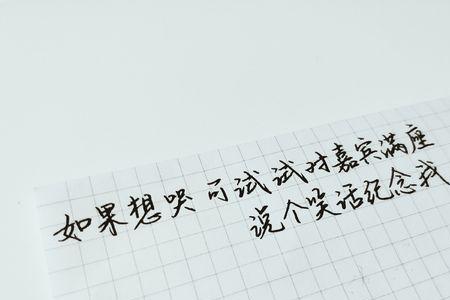 如果想哭 可试试对嘉宾满座
说个笑话纪念我